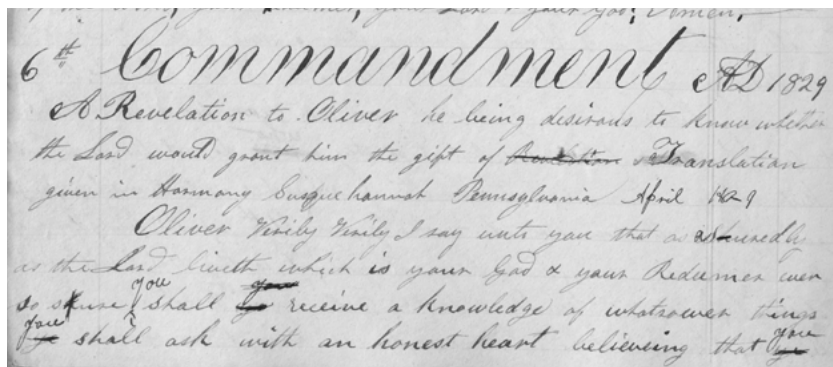 your Lord & your God, Amen,
6th Commandment AD 1829
A Revelation to Oliver he being desirous to know whether
the Lord would grant him the gift of Revelation & Translation
given in Harmony Susquehannah Pennsylvania April 1829
Oliver Verily Verily I say unto you that as assuredly
as the Lord liveth which is your God & your Redeemer even
you you
so sure shall ye receive a knowledge of whatsoever things
you you
ye shall ask with an honest heart believeing that ye